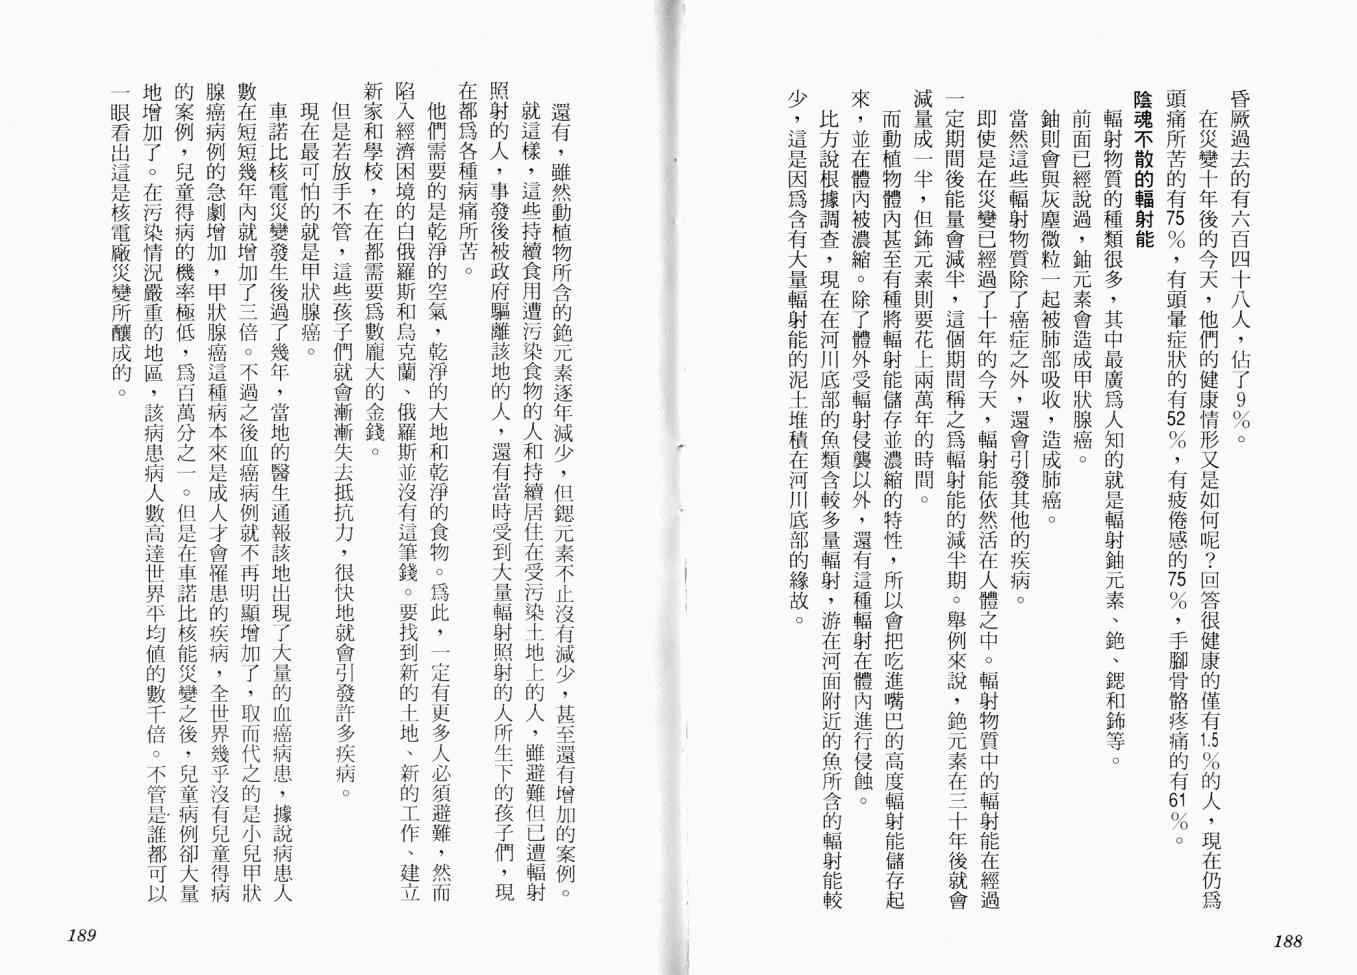 昏厥過去的有六百四十八人，佔了9％。
在災變十年後的今天，他們的健康情形又是如何呢？回答很健康的僅有1.5％的人，現在仍爲
頭痛所苦的有75％，有頭暈症狀的有52％，有疲倦感的75％，手腳骨骼疼痛的有61％。
陰魂不散的輻射能
輻射物質的種類很多，其中最廣爲人知的就是輻射鈾元素、銫、鍶和鈽等。
前面已經說過，鈾元素會造成甲狀腺癌。
鈾則會與灰塵微粒一起被肺部吸收，造成肺癌。
當然這些輻射物質除了癌症之外，還會引發其他的疾病。
即使是在災變已經過了十年的今天，輻射能依然活在人體之中。輻射物質中的輻射能在經過
一定期間後能量會減半，這個期間稱之爲輻射能的減半期。舉例來說，銫元素在三十年後就會
減量成一半，但鈽元素則要花上兩萬年的時間。
而動植物體內甚至有種將輻射能儲存並濃縮的特性，所以會把吃進嘴巴的高度輻射能儲存起
來，並在體內被濃縮。除了體外受輻射侵襲以外，還有這種輻射在體內進行侵蝕。
比方說根據調查，現在在河川底部的魚類含較多量輻射，游在河面附近的魚所含的輻射能較
少，這是因爲含有大量輻射能的泥土堆積在河川底部的緣故。
188
還有，雖然動植物所含的銫元素逐年減少，但鍶元素不止沒有減少，甚至還有增加的案例。
就這樣，這些持續食用遭污染食物的人和持續居住在受污染土地上的人，雖避難但已遭輻射
照射的人，事發後被政府驅離該地的人，還有當時受到大量輻射照射的人所生下的孩子們，現
在都爲各種病痛所苦。
他們需要的是乾淨的空氣，乾淨的大地和乾淨的食物。爲此，一定有更多人必須避難，然而
陷入經濟困境的白俄羅斯和烏克蘭、俄羅斯並沒有這筆錢。要找到新的土地、新的工作、建立
新家和學校，在在都需要爲數龐大的金錢。
但是若放手不管，這些孩子們就會漸漸失去抵抗力，很快地就會引發許多疾病。
現在最可怕的就是甲狀腺癌。
車諾比核電災變發生後過了幾年，當地的醫生通報該地出現了大量的血癌病患，據說病患人
數在短短幾年內就增加了三倍。不過之後血癌病例就不再明顯增加了，取而代之的是小兒甲狀
腺癌病例的急劇增加，甲狀腺癌這種病本來是成人才會罹患的疾病，全世界幾乎沒有兒童得病
的案例，兒童得病的機率極低，爲百萬分之一。但是在車諾比核能災變之後，兒童病例卻大量
地增加了。在污染情況嚴重的地區，該病患病人數高達世界平均値的數千倍。不管是誰都可以
一眼看出這是核電廠災變所釀成的。
189